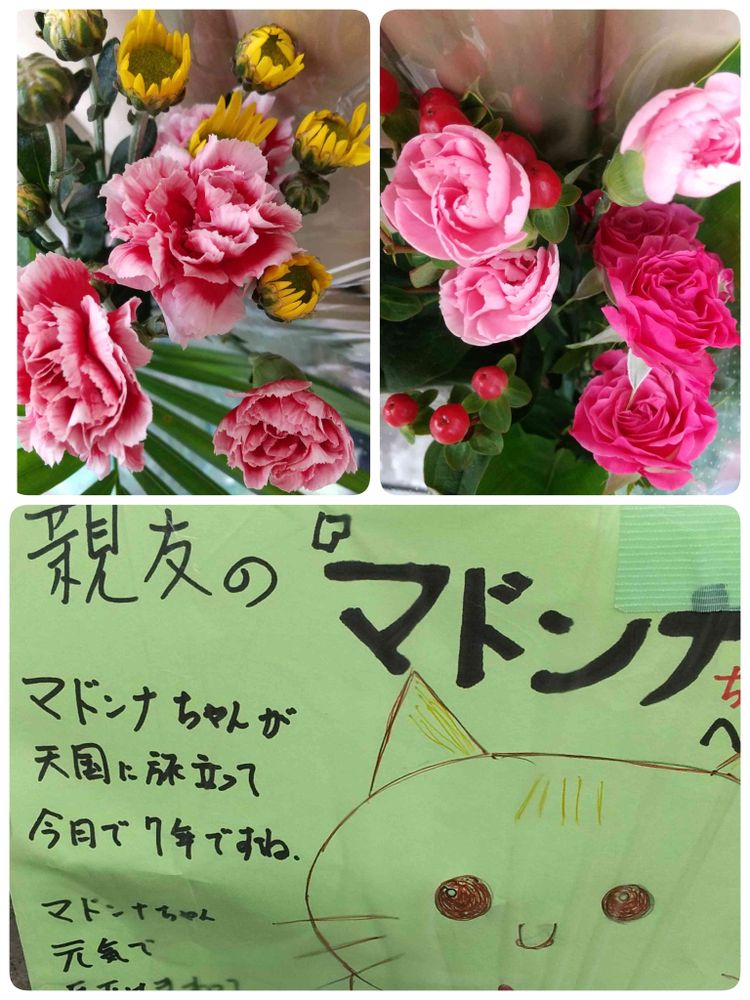 親友の『マドンナち
へ
マドンナちゃんが
天国に旅立って
今月で7年ですね.
マドンナちゃん
元気で